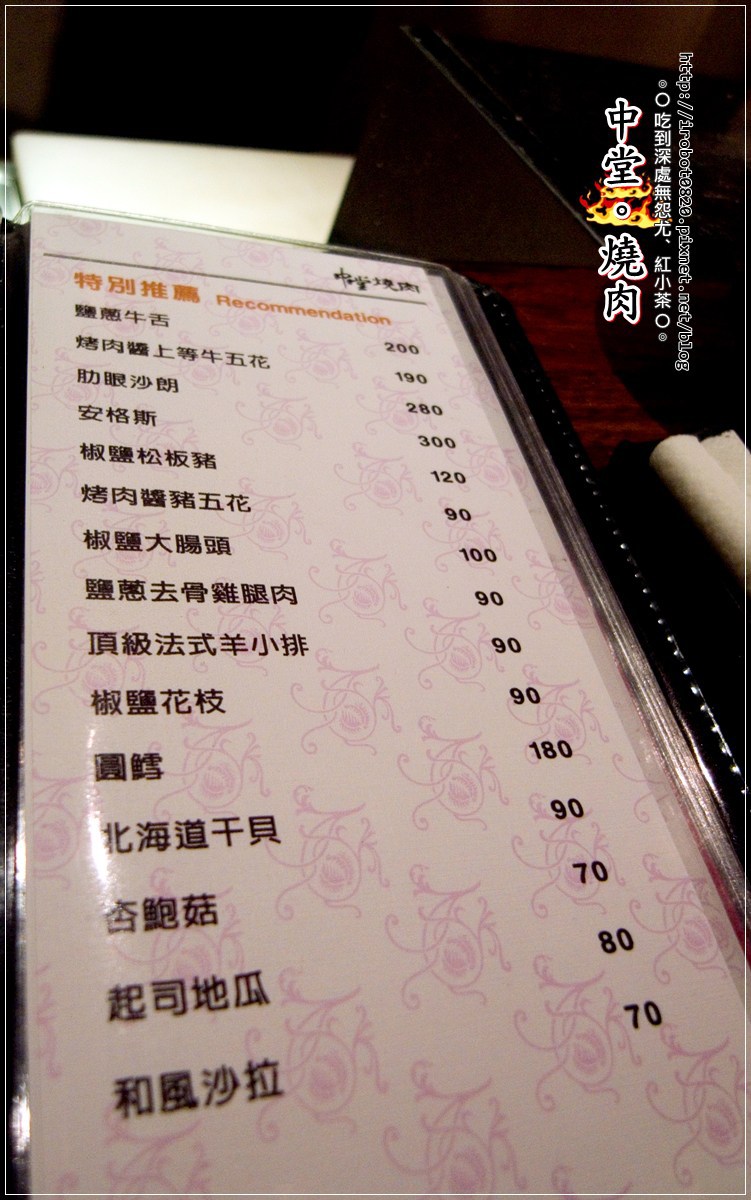 中堂。燒肉
。○吃到深處無怨尤、紅小茶○。
http://irobot0820.pixnet.net/blog
中堂燒肉
特別推薦 Recommendation
鹽蔥牛舌 200
烤肉醬上等牛五花 190
肋眼沙朗 280
安格斯 300
椒鹽松板豬 120
烤肉醬豬五花 90
椒鹽大腸頭 100
鹽蔥去骨雞腿肉 90
頂級法式羊小排 90
椒鹽花枝 90
圓鱈 180
北海道干貝 90
杏鮑菇 70
起司地瓜 80
和風沙拉 70